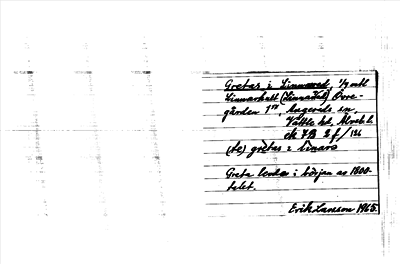 Gretas i Linnarud, 1/2 mtl
Linnarhult (Linnehult) Övre-
gården 1:4, Angereds sn
Vättle hd. Älvsb. l.
ek 7B 2f/126
(te) gretas i
Greta levde i början av 1800-
talet.
Erik Larsson 1965.